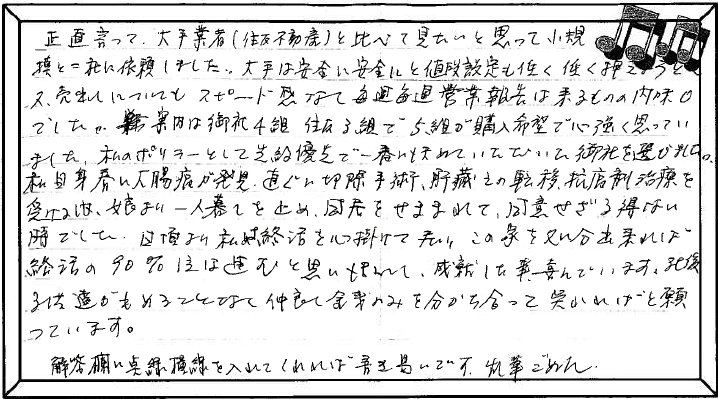 正直言って、大手業者(住友不動産)と比べて見たいと思って小規
模と二社に依頼しました。大手は安全に安全にと値段設定も低く低く押えようと
え、売出しについてもスピード感なく毎週毎週営業報告は来るものの内味0
でした。案内は御社4組 住友3組で5組が購入希望で心強く思ってい
ました。私のポリシーとして先約優先で一番に入れていただいた御社を選びました。
私自身春に大腸癌が発見、直ぐに切除手術、肝臓との転移、抗癌剤治療を
受ける、娘より一人暮しを止め、同居をせままれて、同意せざる得ない
時でした。日頃より私は終活を心掛けて居り、この家を処分出来れば
終活の90%位は進むと思い、成就した事喜んでいます。死後
る遺産がもめることなく仲良く金事のみを分かち合って笑かればと願
っています。
解答欄に点線横線を入れてくれれば書き易いです。乱筆ごめん。